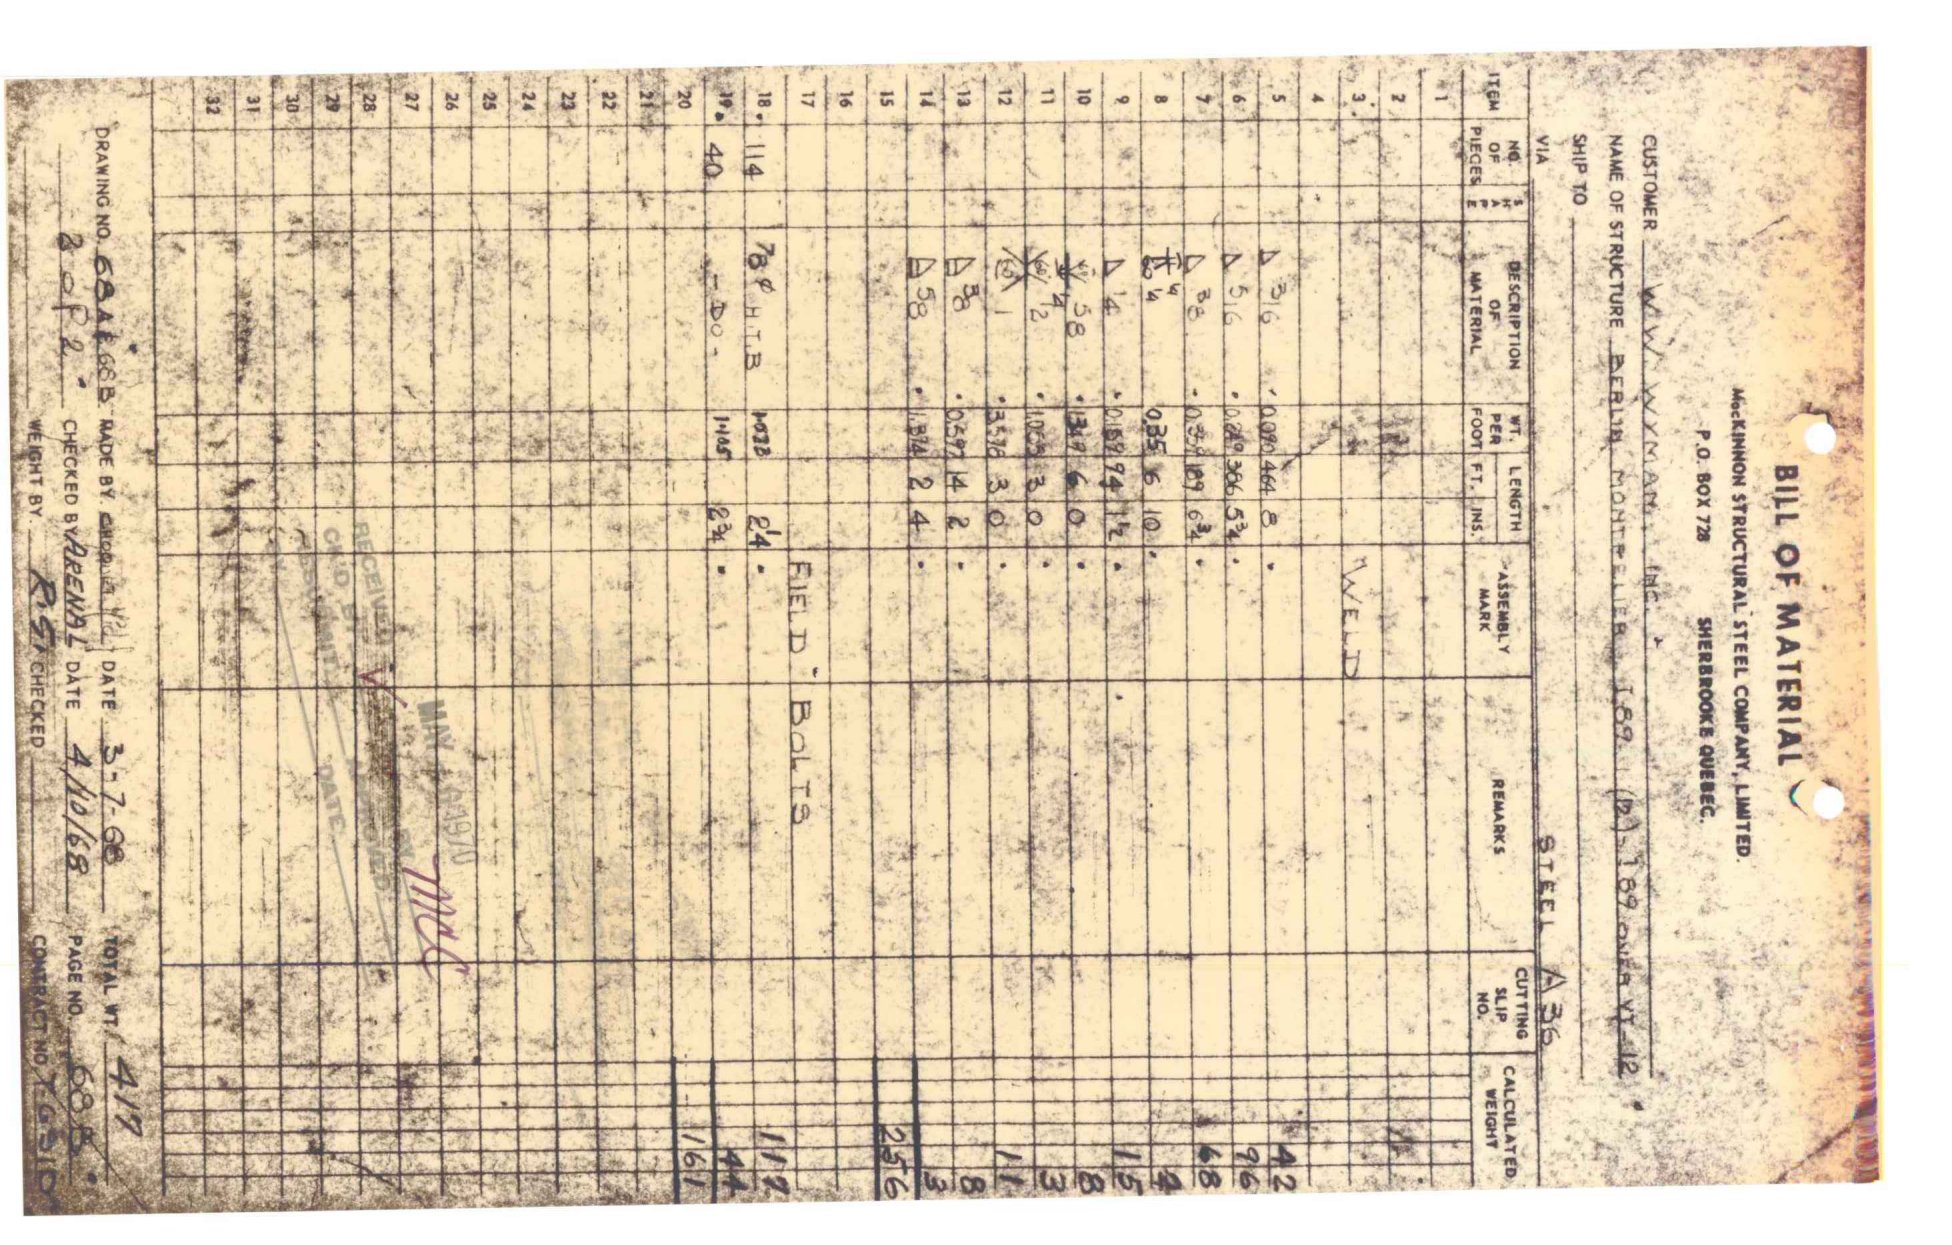 BILL OF MATERIAL
MacKINNON STRUCTURAL STEEL COMPANY, LIMITED
P.O. BOX 728 SHERBROOKE QUEBEC.
CUSTOMER W.W. WYMAN, INC.
NAME OF STRUCTURE BERLIN, MONTPELIER, I89 (12), I89 OVER VT-12
SHIP TO
VIA STEEL A36
ITEM NO. OF PIECES SHAPE DESCRIPTION OF MATERIAL WT. PER FOOT LENGTH FT. INS. ASSEMBLY MARK REMARKS CUTTING SLIP NO. CALCULATED WEIGHT
1
2
3 WELD
4
5 316 0.090 464 8 42
6 516 0.249 386 5¾ 96
7 38 89 6¾ 68
8 60 ¼ 0.35 6 10
9 ¼ 0.159 94 1½ 15
10 58 1.349 6 0 8
11 60 12 1.063 3 0 3
12 60 1 3.578 3 0 11
13 38 0.597 14 2 8
14 58 1.374 2 4 3
15 256
16
17 FIELD BOLTS
18 114 78 φ H.T.B 2¼ 117
19 40 -DO- 2¾ 44
20 161
21
22
23
24
25
26
27
28
29
30
31
32
RECEIVED
MAY 1970
BY MC
CK'D BY APPROVED
BY DATE
DRAWING NO. 68A & 68B MADE BY DATE 3-7-68 TOTAL WT. 417
2 OF 2 CHECKED BY ARENAL DATE 4/10/68 PAGE NO. 68B
WEIGHT BY R.S. CHECKED CONTRACT NO.